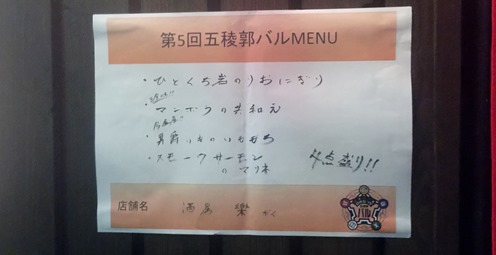 第5回五稜郭バルMENU
・ひとくち岩のりおにぎり
・マンボウの共和え
・男爵いものいももち
・スモークサーモン
のマリネ
4点盛り!!
店舗名 酒房 樂 がく
バル